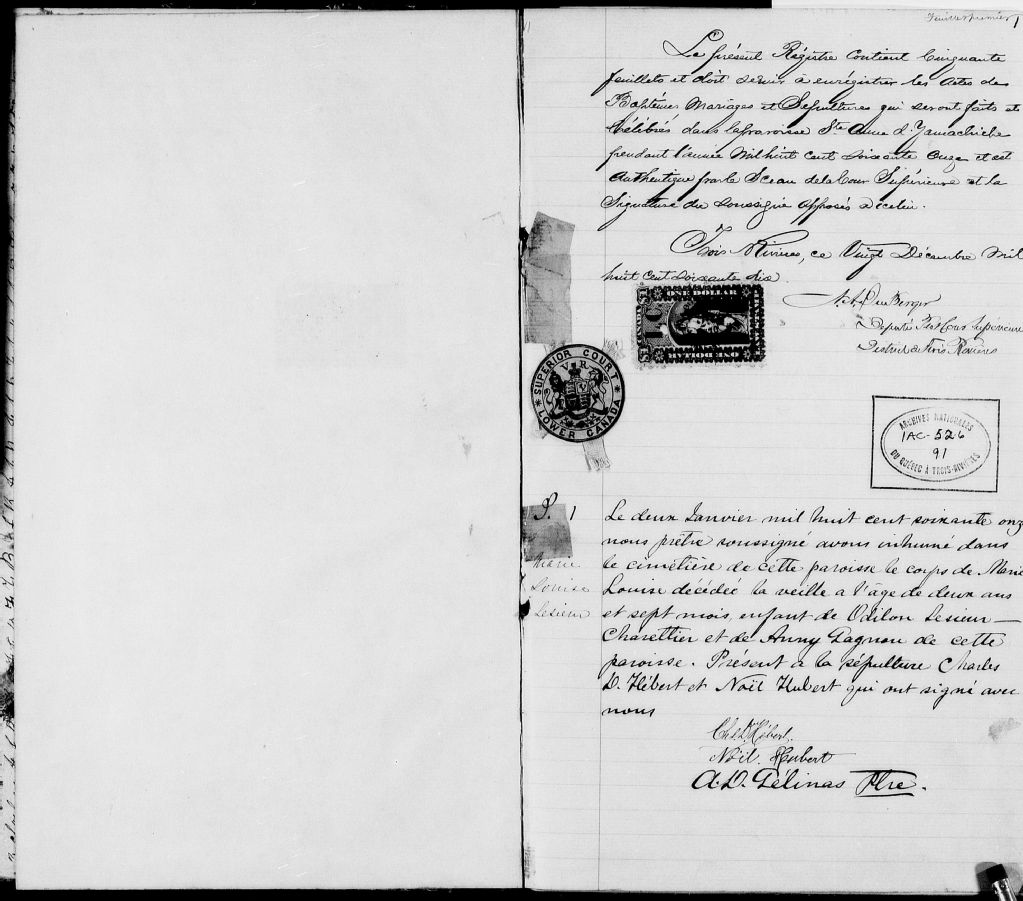 Feuillet premier 1
Le présent Régistre contient Cinquante
feuillets et doit servir à enrégistrer les Actes de
Baptêmes Mariages et Sépultures qui seront faits et
Célébrés dans la paroisse Ste Anne d'Yamachiche
pendant l'année Mil huit cent soixante onze et est
Authentiqué par le Sceau de la Cour Supérieure et la
Signature du soussigné apposés à celui.
Trois Rivières, ce Vingt Décembre Mil
huit cent soixante dix
ONE DOLLAR
CANADA
$1
SUPERIOR COURT
V R
LOWER CANADA
Deputé Cour Supérieure
District de Trois Rivières
ARCHIVES NATIONALES
IAC-526
91
DU QUÉBEC À TROIS-RIVIÈRES
S. 1
Marie
Louise
Lesieur
Le deux Janvier mil huit cent soixante onz
nous prêtre soussigné avons inhumé dans
le cimétière de cette paroisse le corps de Marie
Louise décédée la veille a l'âge de deux ans
et sept mois, enfant de Odilon Lesieur —
Charettier et de Anny Gagnon de cette
paroisse. Présent à la sépulture Charles
D. Hébert et Noël Hubert qui ont signé avec
nous
Chs D. Hébert.
Noël. Hubert
A. D. Gélinas Ptre.